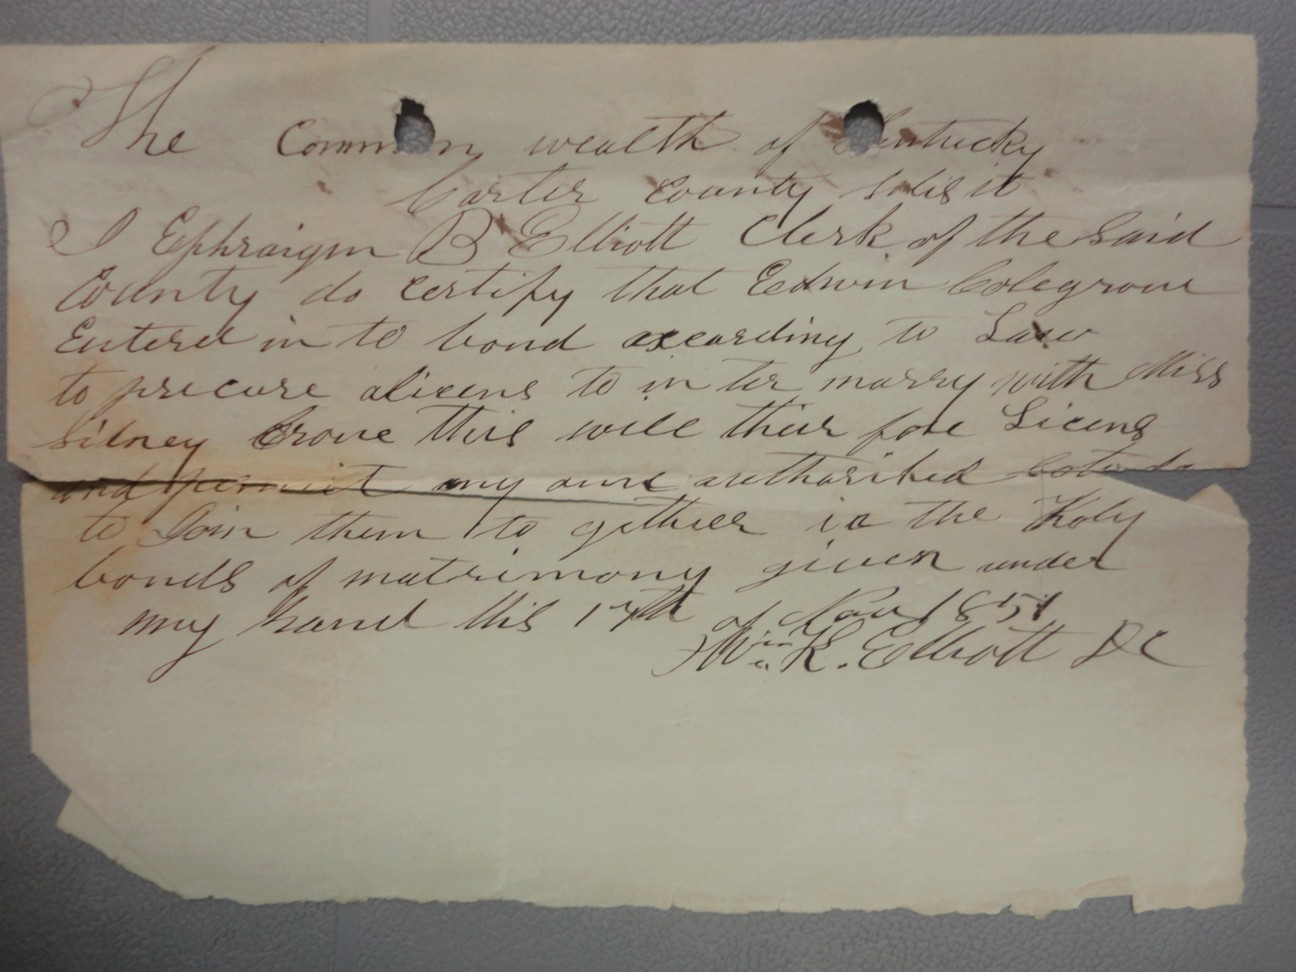 The Common wealth of Kentucky
Carter County
I Ephraigm B Elliott Clerk of the Said
County do certify that Edwin Colegrove
Enterd in to bond according to Law
to precure alicens to in ter marry with Miss
Sidney Crove this will their fore Licens
and permit any authorised
to Join them to gether in the Holy
bonds of matrimony given under
my hand this 17th of Nov 1851
Wm K. Elliott DC